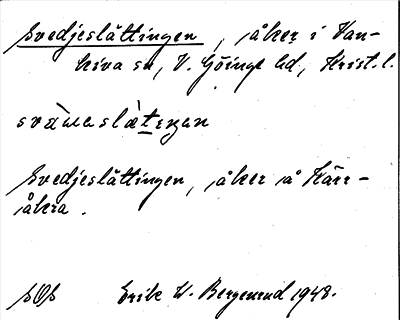 Svedjeslättingen, åker i Van-
kiva sn, V. Göinge hd, Krist. l.
svàneslàteŋen
Svedjeslättingen, åker å Kärr-
åkra.
SOS Erik W. Bergenrud 1948.